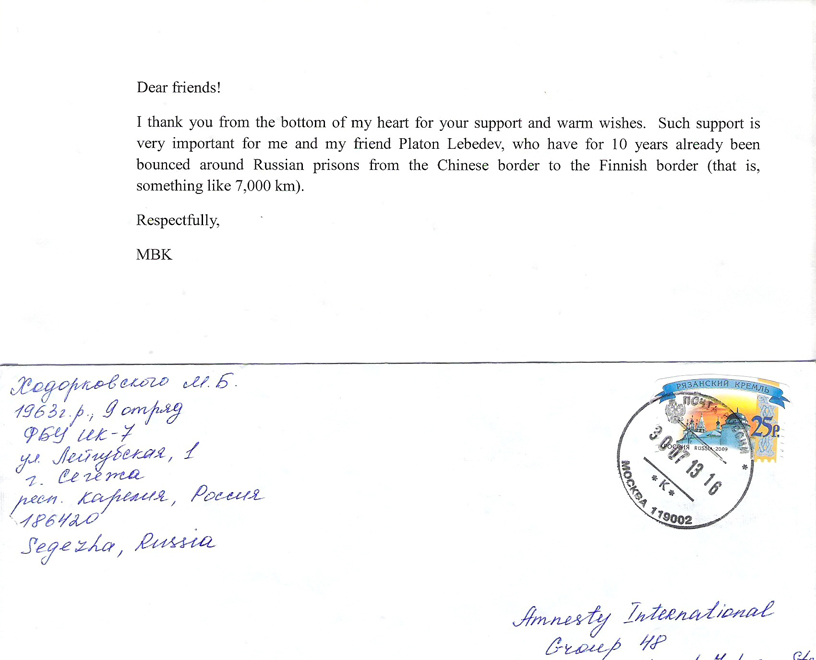 Dear friends!
I thank you from the bottom of my heart for your support and warm wishes. Such support is
very important for me and my friend Platon Lebedev, who have for 10 years already been
bounced around Russian prisons from the Chinese border to the Finnish border (that is,
something like 7,000 km).
Respectfully,
MBK
Ходорковского М.Б.
1963г.р., 9 отряд
ФБУ ИК-7
ул. Лейгубская, 1
г. Сегежа
респ. Карелия, Россия
186420
Segezha, Russia
РЯЗАНСКИЙ КРЕМЛЬ
ПОЧТА РОССИИ
25р.
РОССИЯ RUSSIA 2009
30 07 13 16
*К*
МОСКВА 119002
Amnesty International
Group 48